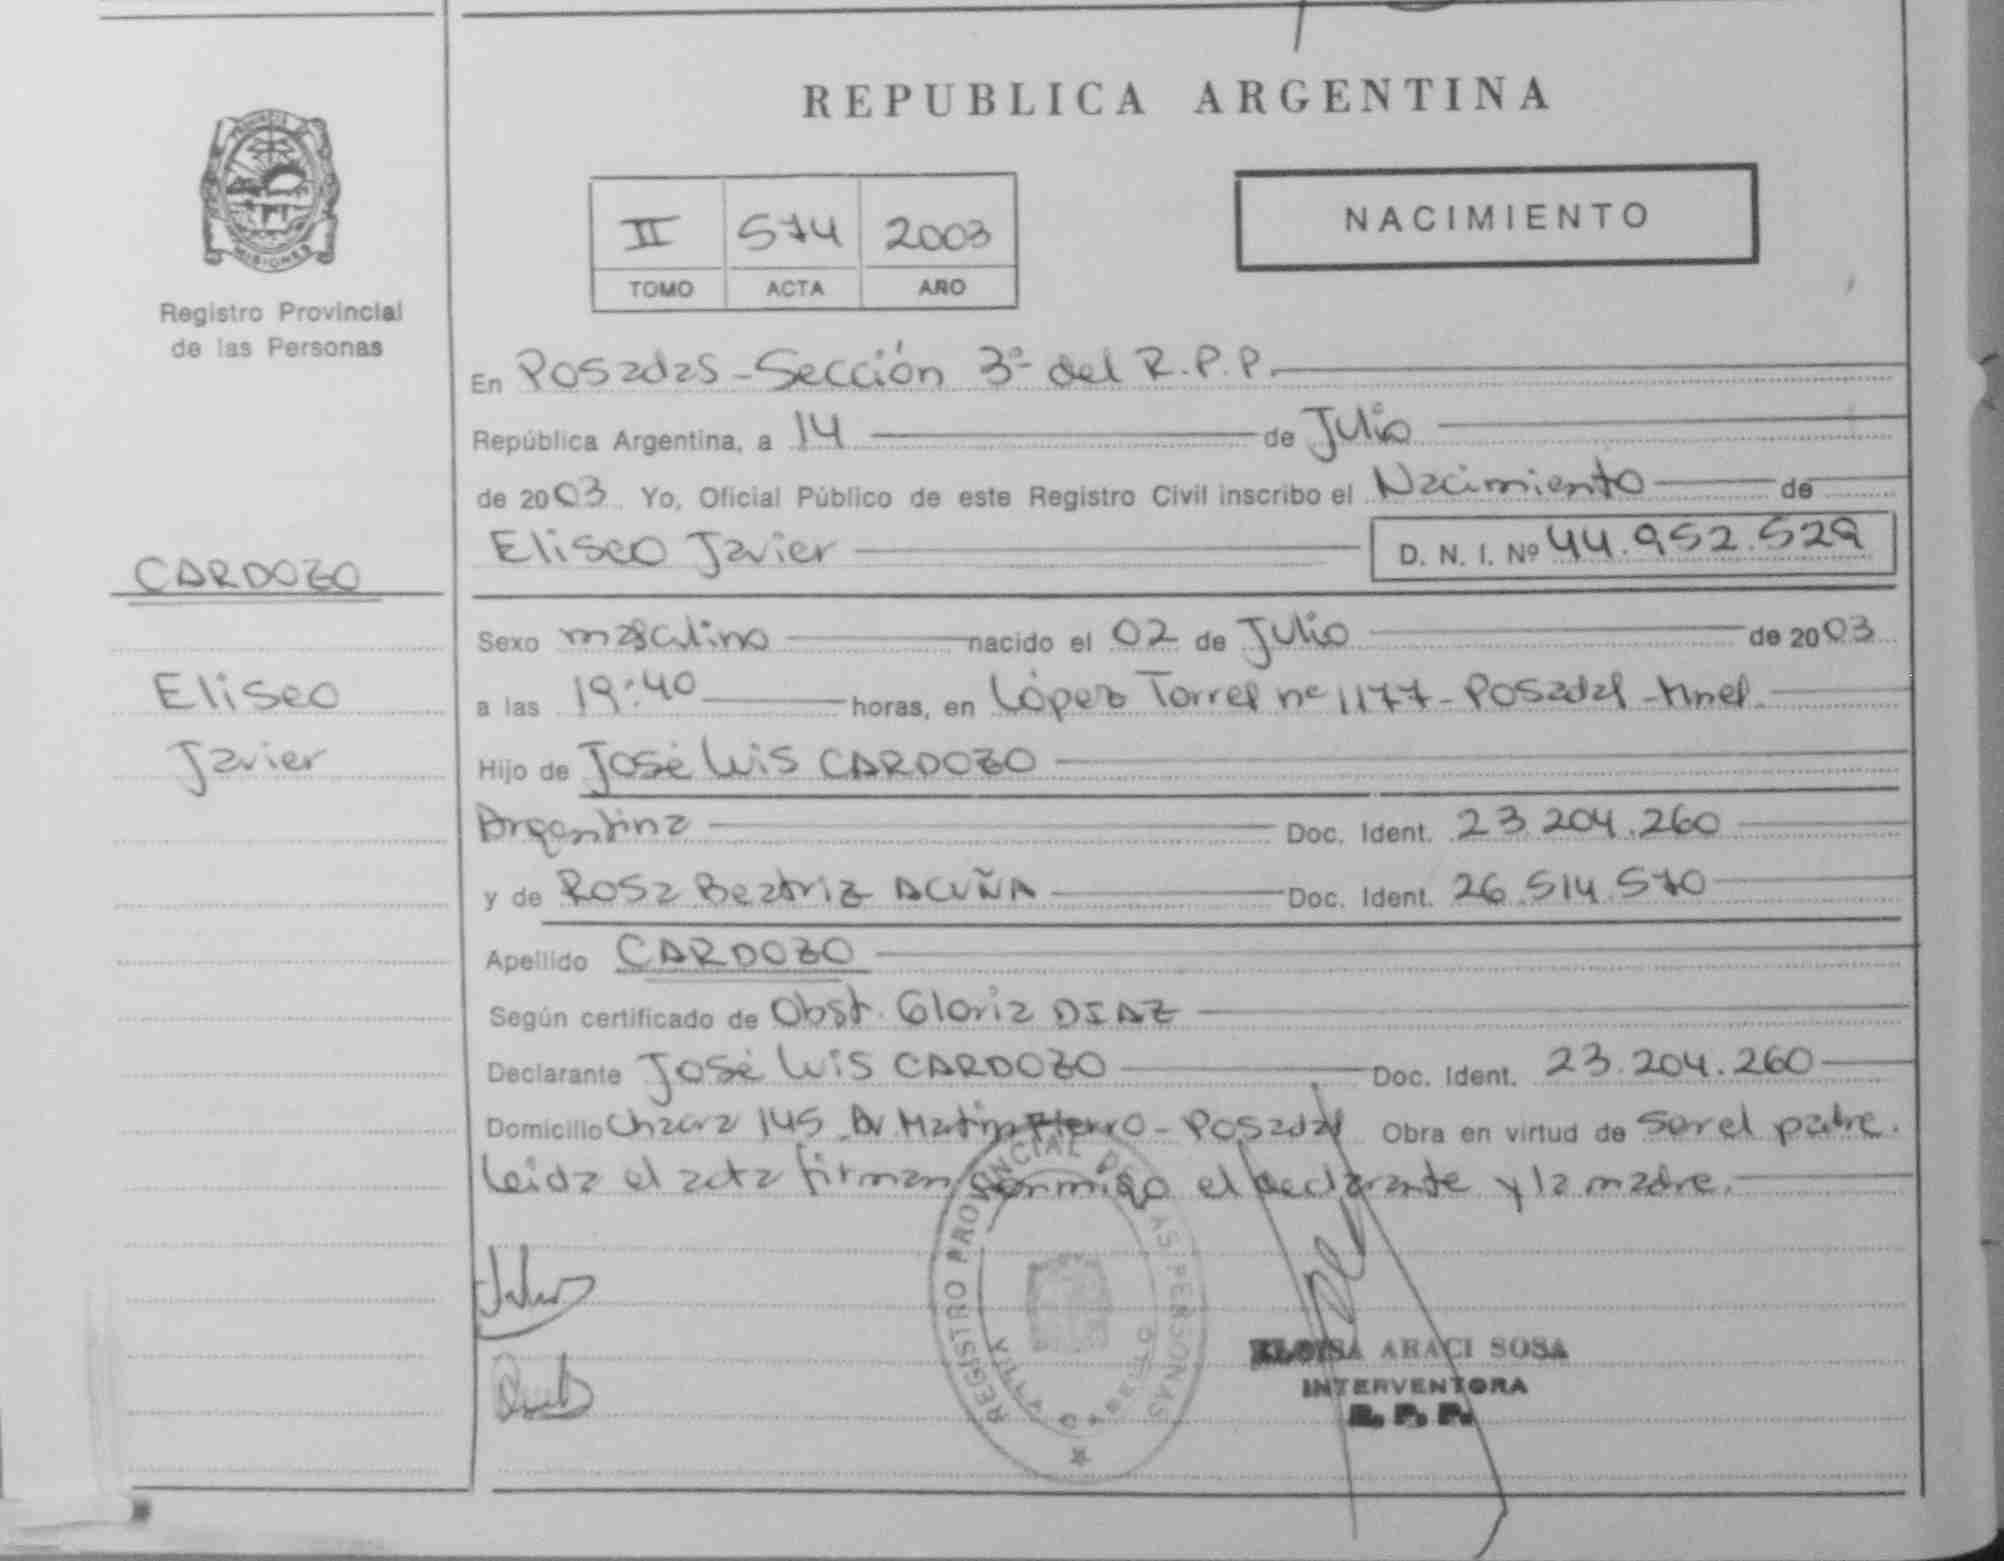 REPUBLICA ARGENTINA
NACIMIENTO
II 574 2003
TOMO ACTA AÑO
MISIONES
Registro Provincial
de las Personas
En Posadas - Sección 3ª del R.P.P.
República Argentina, a 14 de Julio
de 2003 Yo, Oficial Público de este Registro Civil inscribo el Nacimiento de
Eliseo Javier D. N. I. Nº 44.952.529
CARDOZO
Eliseo
Javier
Sexo masculino nacido el 02 de Julio de 2003
a las 19:40 horas, en López Torres nº 1177 - Posadas - Mnes.
Hijo de José Luis CARDOZO
Argentina Doc. Ident. 23.204.260
y de Rosa Beatriz ACUÑA Doc. Ident. 26.514.570
Apellido CARDOZO
Según certificado de Obst. Gloria DIAZ
Declarante José Luis CARDOZO Doc. Ident. 23.204.260
Domicilio Chacra 145 Av Martin Fierro - Posadas Obra en virtud de ser el padre.
Leida el acta firman conmigo el declarante y la madre.
REGISTRO PROVINCIAL DE LAS PERSONAS
ELOISA ARACI SOSA
INTERVENTORA
R. P. P.